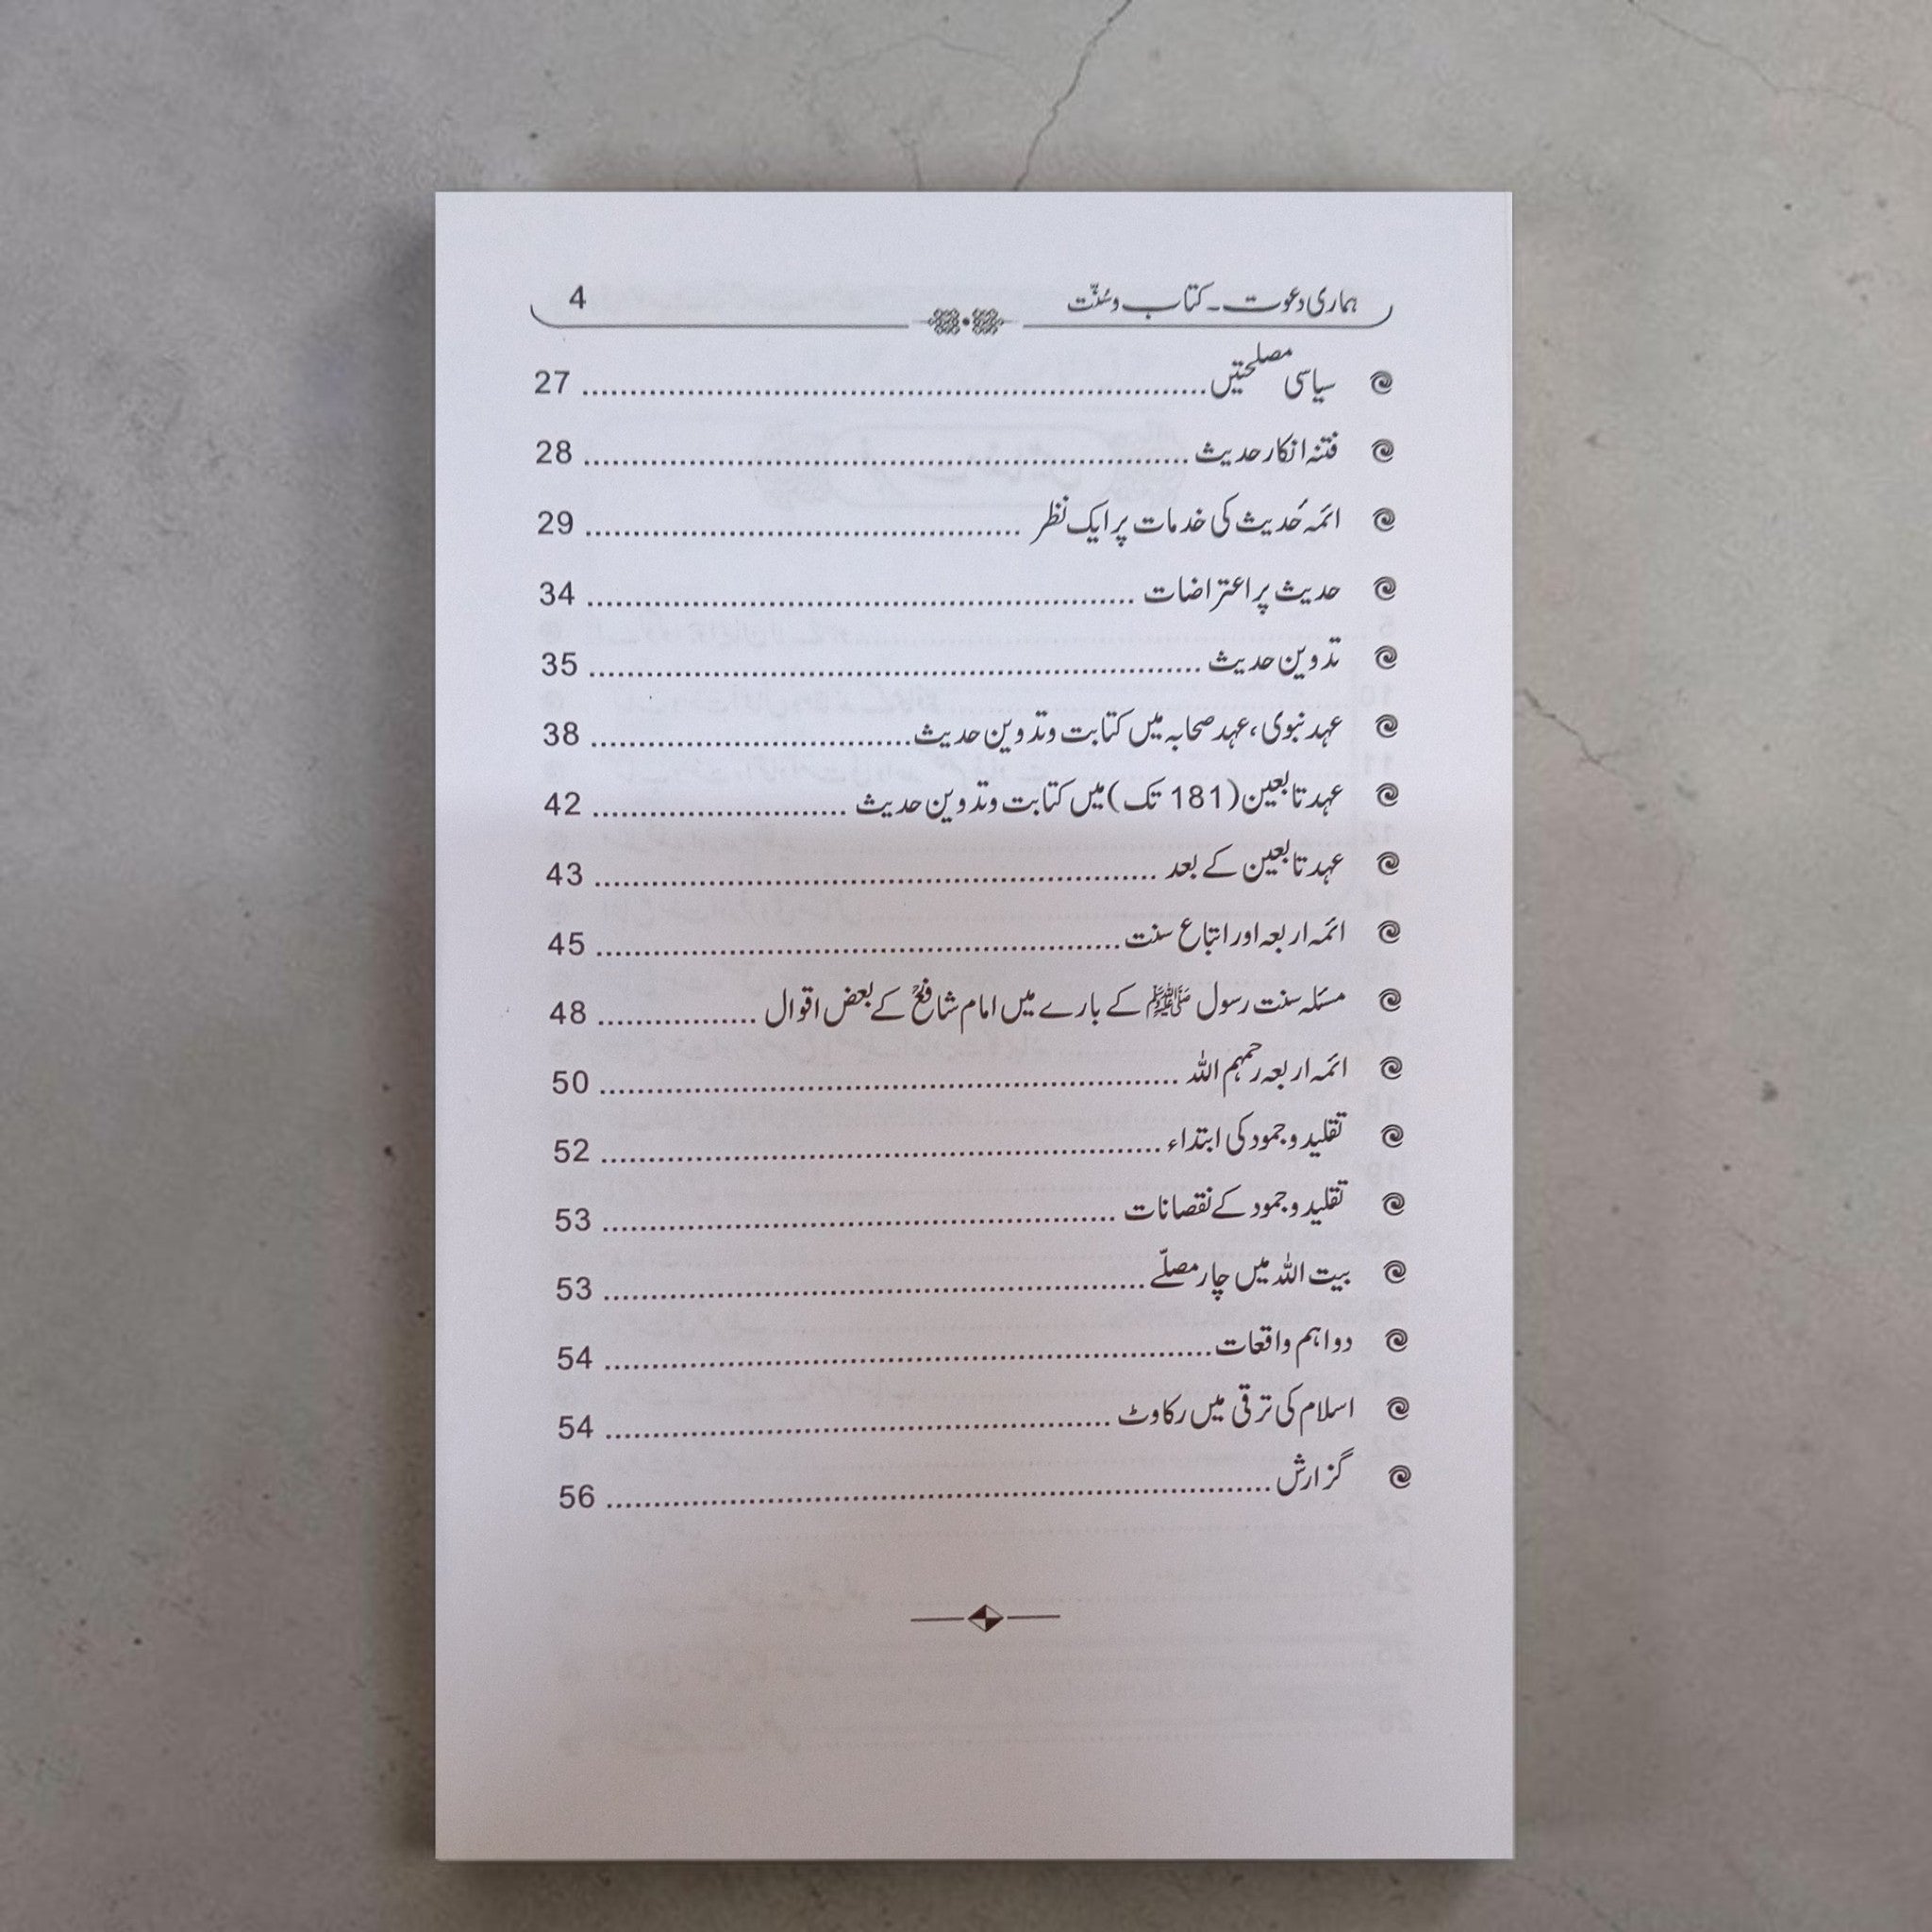 ہماری دعوت۔ کتاب و سُنّت 4
سیاسی مصلحتیں 27
فتنہ انکار حدیث 28
ائمہ حُدیث کی خدمات پر ایک نظر 29
حدیث پر اعتراضات 34
تدوین حدیث 35
عہد نبوی، عہد صحابہ میں کتابت و تدوین حدیث 38
عہد تابعین (181 تک) میں کتابت و تدوین حدیث 42
عہد تابعین کے بعد 43
ائمہ اربعہ اور اتباع سنت 45
مسئلہ سنت رسول ﷺ کے بارے میں امام شافعیؒ کے بعض اقوال 48
ائمہ اربعہ رحمہم اللہ 50
تقلید و جمود کی ابتداء 52
تقلید و جمود کے نقصانات 53
بیت اللہ میں چار مصلّے 53
دو اہم واقعات 54
اسلام کی ترقی میں رکاوٹ 54
گزارش 56